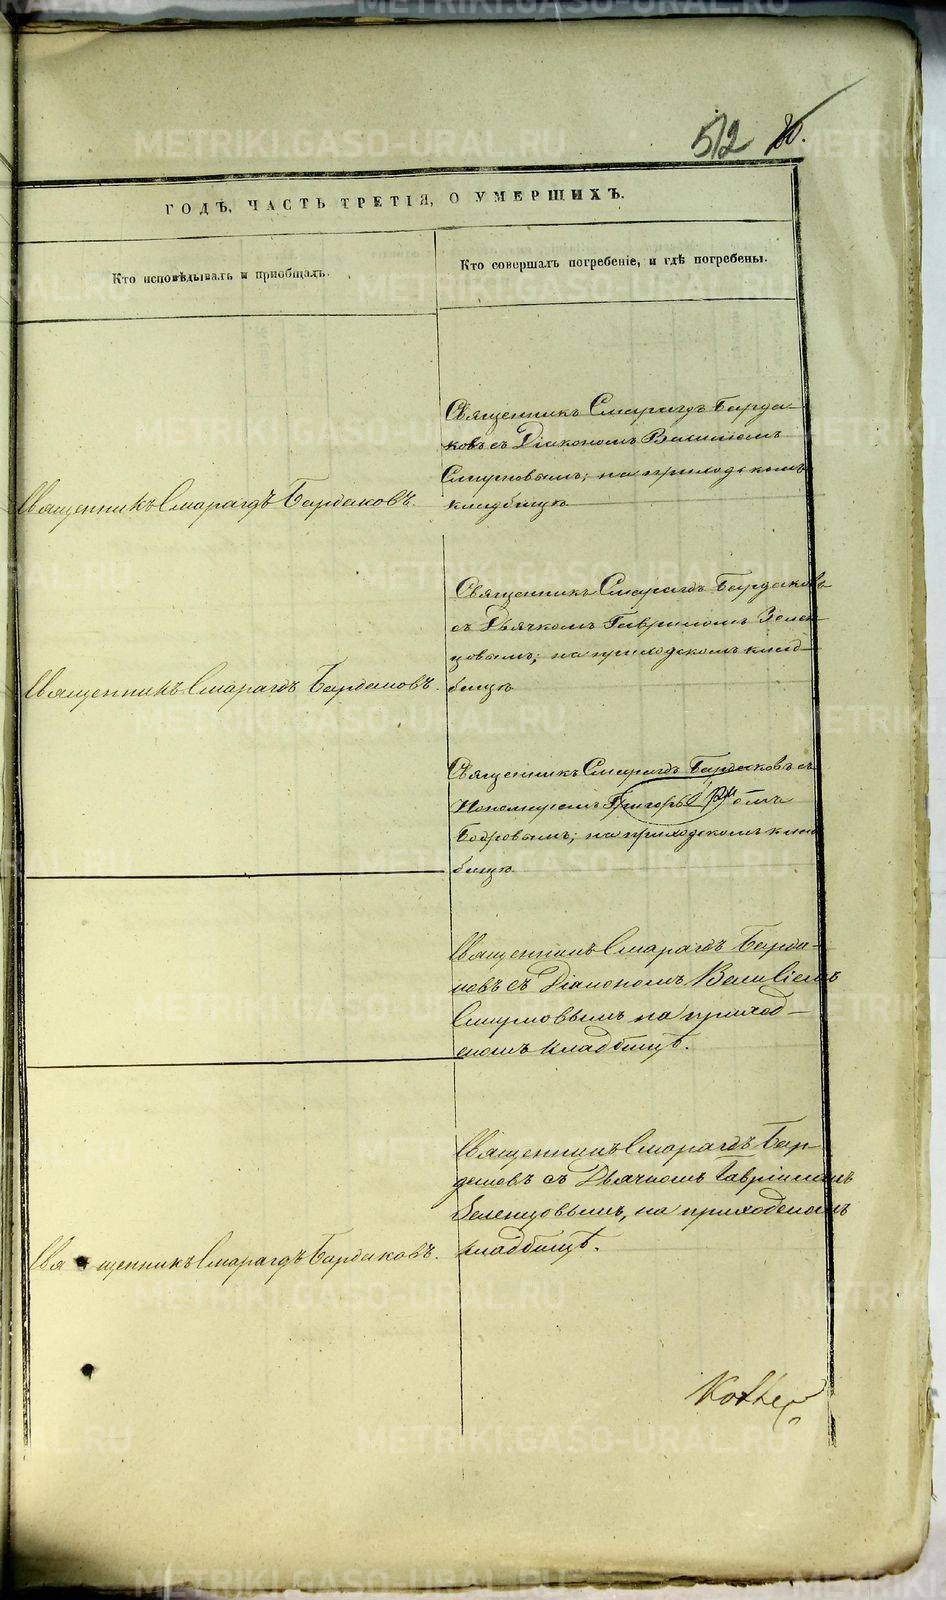 512
ГОДѢ, ЧАСТЬ ТРЕТІЯ, О УМЕРШИХЪ.
Кто исповѣдывалъ и пріобщалъ.
Кто совершалъ погребеніе, и гдѣ погребены.
Священникъ Смарагдъ Бардаковъ.
Священникъ Смарагдъ Барда-
ковъ съ Діакономъ Василіемъ
Смирновымъ; на приходскомъ
кладбищѣ
Священникъ Смарагдъ Бардаковъ.
Священникъ Смарагдъ Бардаковъ
съ Дьячкомъ Гавриломъ Зелен-
цовымъ; на приходскомъ клад-
бищѣ
Священникъ Смарагдъ Бардаковъ съ
Пономаремъ Григорьемъ
Бобровымъ; на приходскомъ клад
бищѣ
Священникъ Смарагдъ Барда-
ковъ съ Діакономъ Василіемъ
Смирновымъ на приход-
скомъ кладбищѣ.
Священникъ Смарагдъ Бардаковъ.
Священникъ Смарагдъ Бар-
даковъ съ Дьячкомъ Гавріиломъ
Зеленцовымъ, на приходскомъ
кладбищѣ.
METRIKI.GASO-URAL.RU